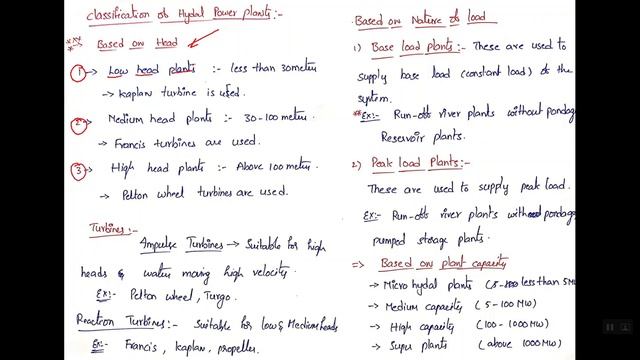 Classification of Hydal Power plants:-
*** → Based on Head
1 → Low head plants :- less than 30meter
→ kaplan turbine is used.
2 → Medium head plants :- 30-100 meter.
→ Francis turbines are used.
3 → High head plants :- Above 100 meter.
→ Pelton wheel turbines are used.
Turbines:-
Impulse Turbines → Suitable for high
heads & water moving high velocity.
Ex:- Pelton wheel, Turgo.
Reaction Turbines:- Suitable for low & Medium heads
Ex:- Francis, kaplan, propeller.
Based on Nature of load
1) Base load plants:- These are used to
supply base load (constant load) of the
system.
** Ex:- Run-off river plants without pondage
Reservoir plants.
2) Peak load Plants:-
These are used to supply peak load.
Ex:- Run-off river plants with pondage
pumped storage plants.
⇒ Based on plant capacity
→ Micro hydal plants (less than 5M
→ Medium capacity (5-100MW)
→ High capacity (100-1000MW)
→ Super plants (above 1000MW)